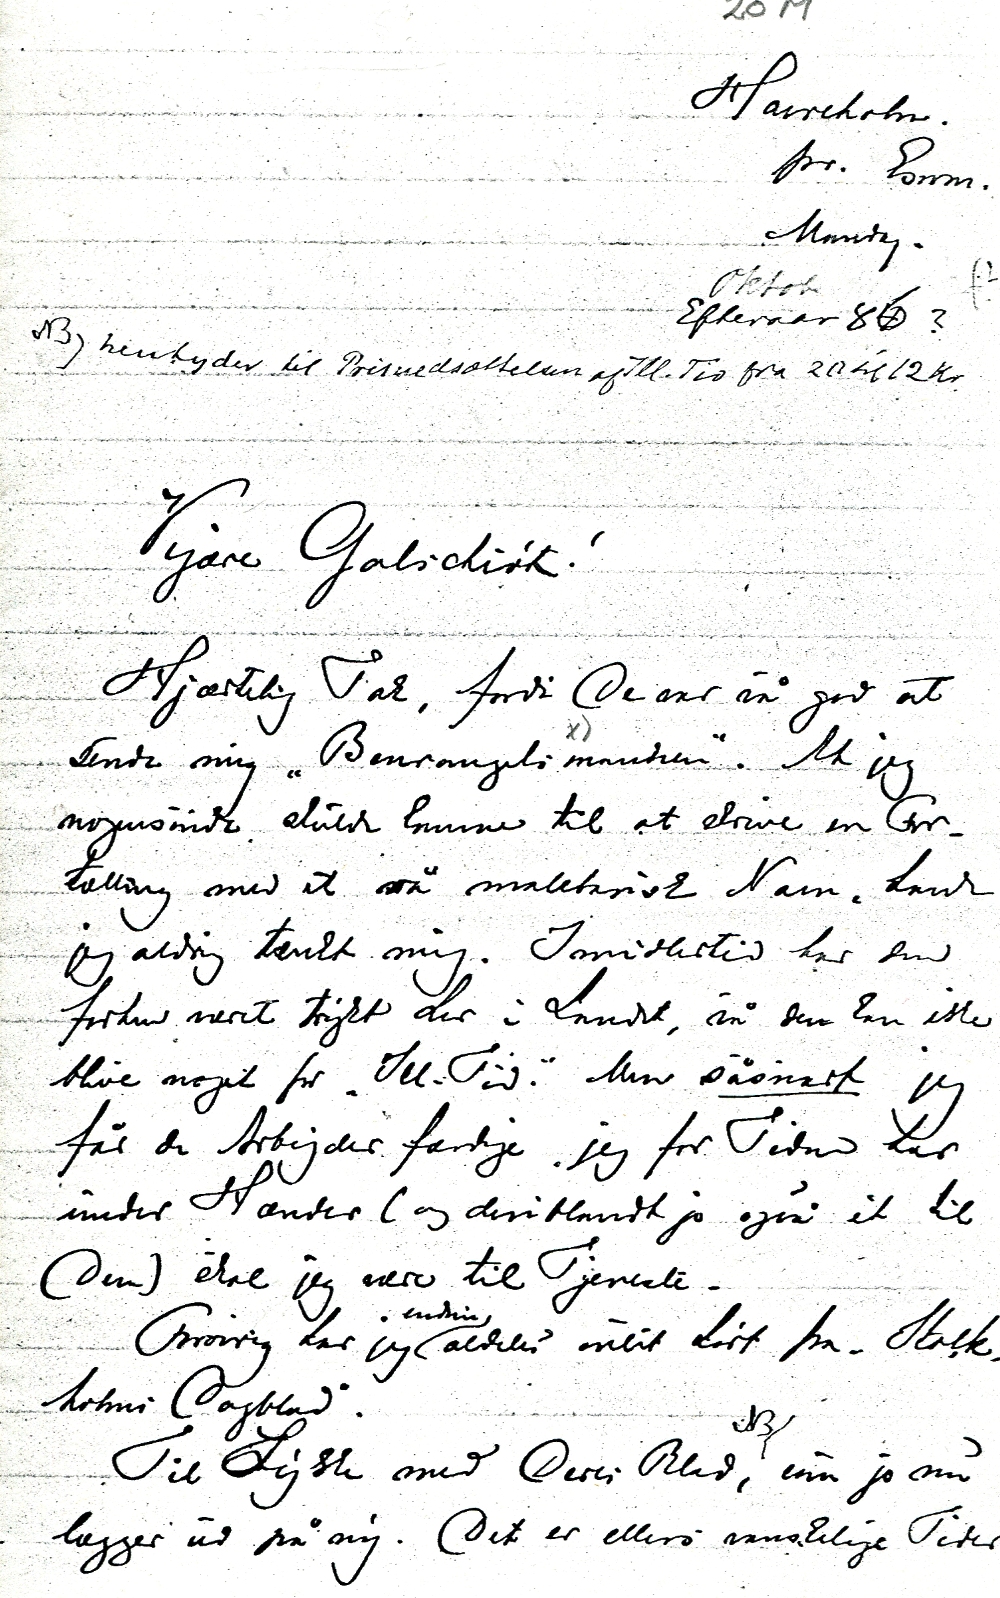 20 M
Havreholm.
pr. Esrom.
Mandag.
Oktob
Efteraar 86 ?
NB) hentyder til Prisnedsættelsen af Ill. Tid fra 20 til 12 Kr.
Kjære Galschiøt!
Hjærtelig Tak, fordi De var så god at
sende mig „Benrangelsmanden“. At jeg
x)
nogensinde skulde komme til at skrive en For-
tælling med et så maletarisk Navn, havde
jeg aldrig tænkt mig. Imidlertid har den
forhen været trykt her i Landet, så den kan ikke
blive noget for „Ill. Tid.“ Men såsnart jeg
får de Arbejder færdige, jeg for Tiden har
under Hænder (og deriblandt jo også et til
Dem) skal jeg være til Tjeneste.
Forøvrig har jeg endnu aldeles intet hørt fra „Stock-
holms Dagblad“.
Til Lykke med Deres Blad, NB) som jo nu
lægger ud på ny. Det er ellers vanskelige Tider